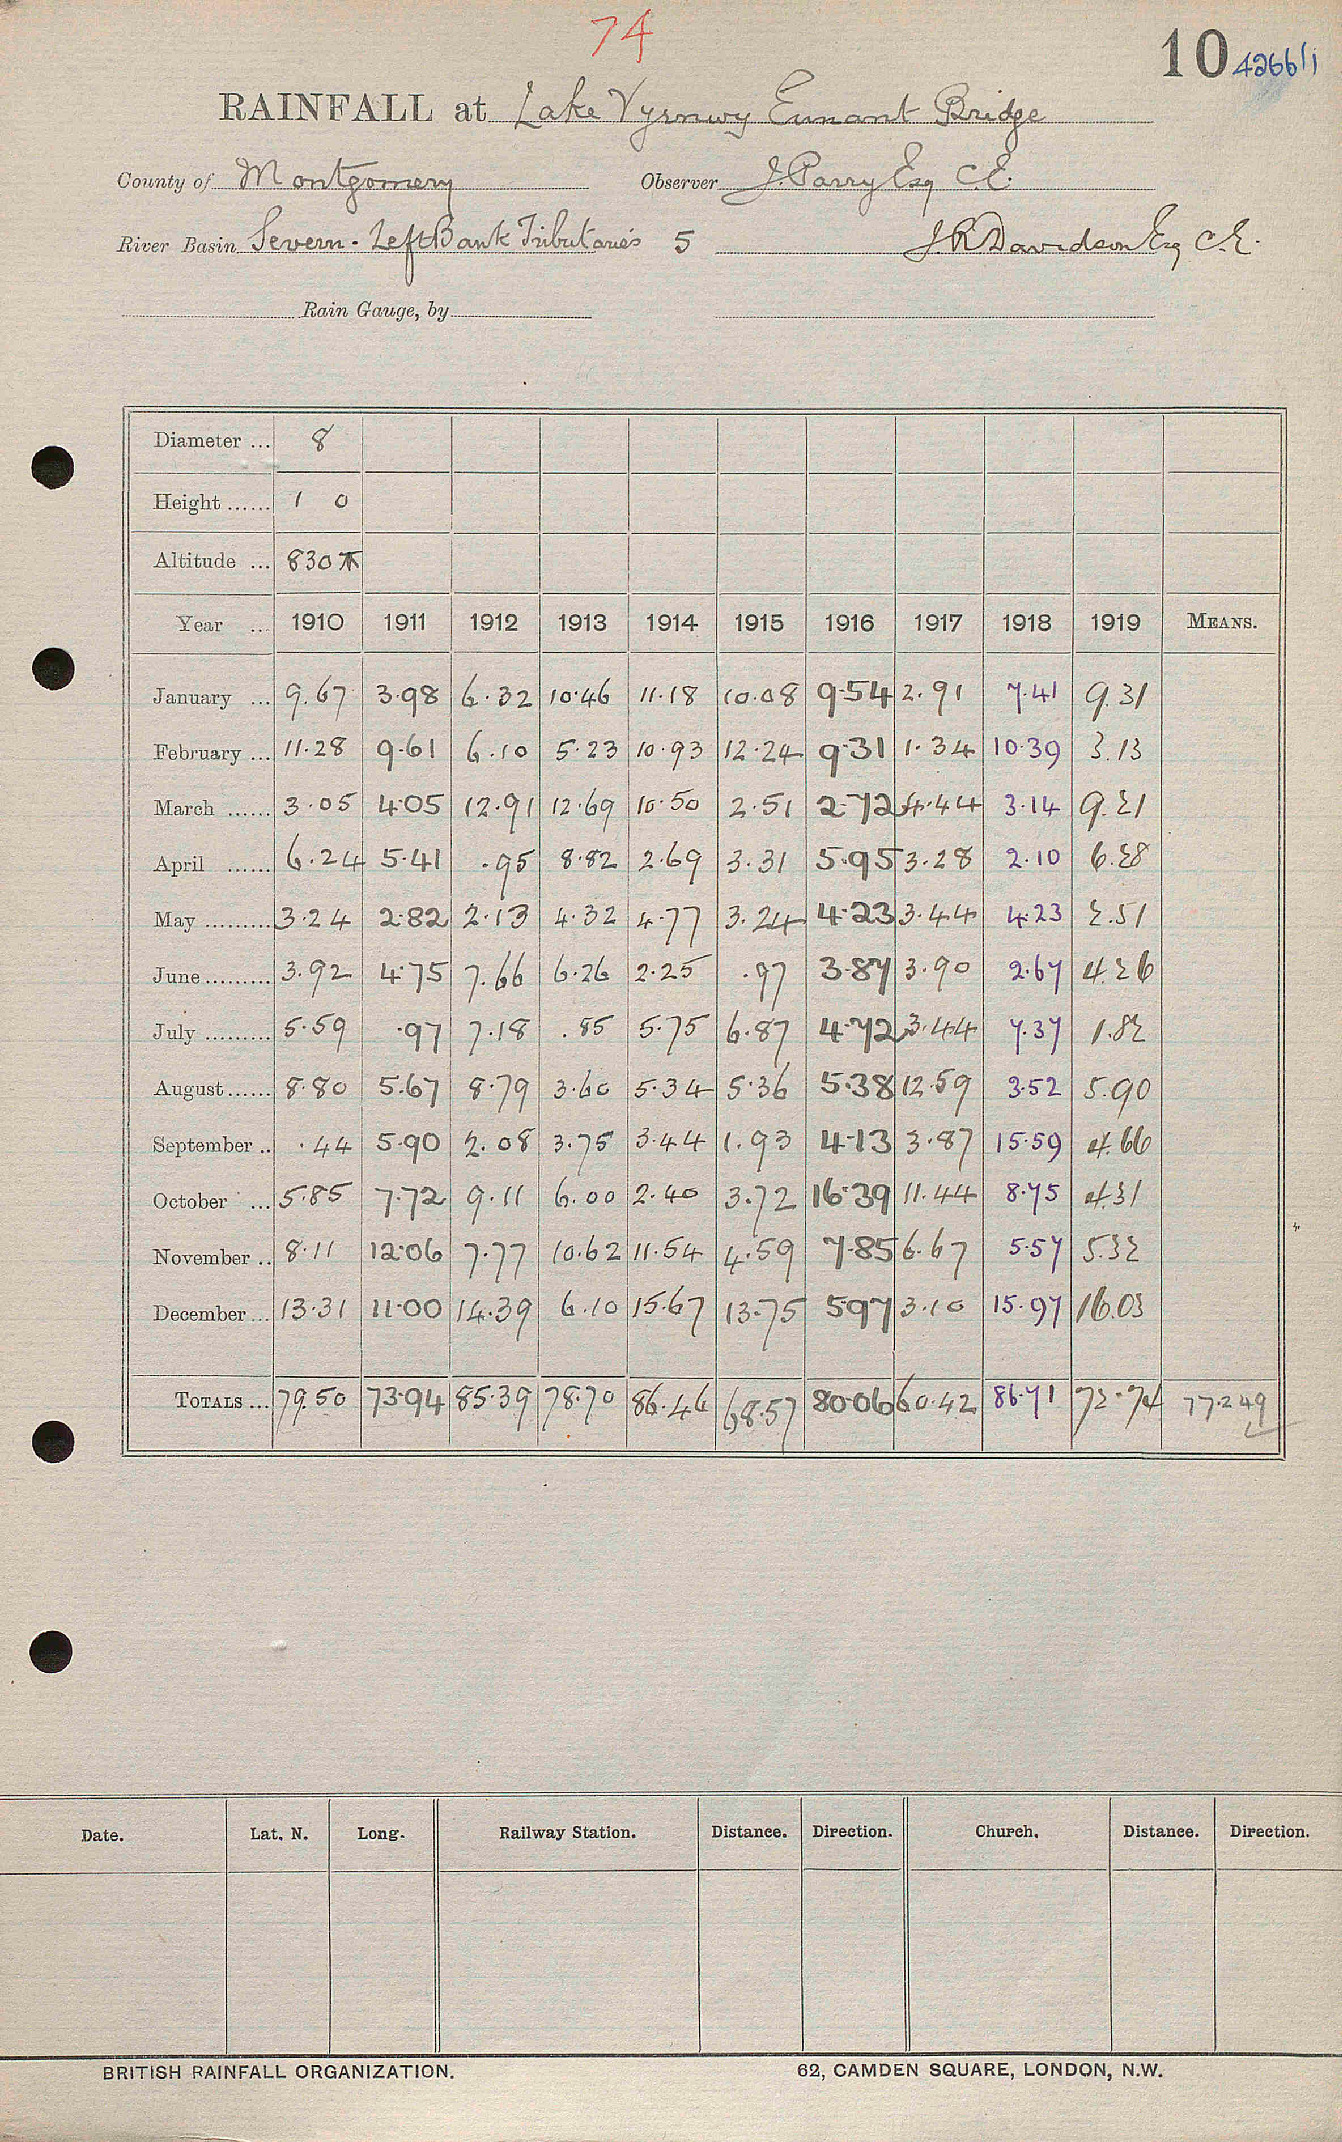 74
10 42661i
RAINFALL at Lake Vyrnwy Eunant Bridge
County of Montgomery Observer J. Parry Esq C.E.
River Basin Severn - Left Bank Tributaries 5 J.R Davidson Esq C.E.
Rain Gauge, by
Diameter ... 8
Height ...... 1 0
Altitude ... 830
Year ... 1910 1911 1912 1913 1914 1915 1916 1917 1918 1919 MEANS.
January ... 9.67 3.98 6.32 10.46 11.18 10.08 9.54 2.91 7.41 9.31
February ... 11.28 9.61 6.10 5.23 10.93 12.24 9.31 1.34 10.39 3.13
March ...... 3.05 4.05 12.91 12.69 10.50 2.51 2.72 4.44 3.14 9.21
April ...... 6.24 5.41 .95 8.82 2.69 3.31 5.95 3.28 2.10 6.28
May ......... 3.24 2.82 2.13 4.32 4.77 3.24 4.23 3.44 4.23 2.51
June ......... 3.92 4.75 7.66 6.26 2.25 .97 3.87 3.90 2.67 4.26
July ......... 5.59 .97 7.18 .85 5.75 6.87 4.72 3.44 7.37 1.82
August ...... 8.80 5.67 8.79 3.60 5.34 5.36 5.38 12.59 3.52 5.90
September .. .44 5.90 2.08 3.75 3.44 1.93 4.13 3.87 15.59 4.66
October ... 5.85 7.72 9.11 6.00 2.40 3.72 16.39 11.44 8.75 4.31
November .. 8.11 12.06 7.77 10.62 11.54 4.59 7.85 6.67 5.57 5.32
December ... 13.31 11.00 14.39 6.10 15.67 13.75 5.97 3.10 15.97 16.03
TOTALS ... 79.50 73.94 85.39 78.70 86.46 68.57 80.06 60.42 86.71 72.74 77.249
Date. Lat. N. Long. Railway Station. Distance. Direction. Church. Distance. Direction.
BRITISH RAINFALL ORGANIZATION. 62, CAMDEN SQUARE, LONDON, N.W.